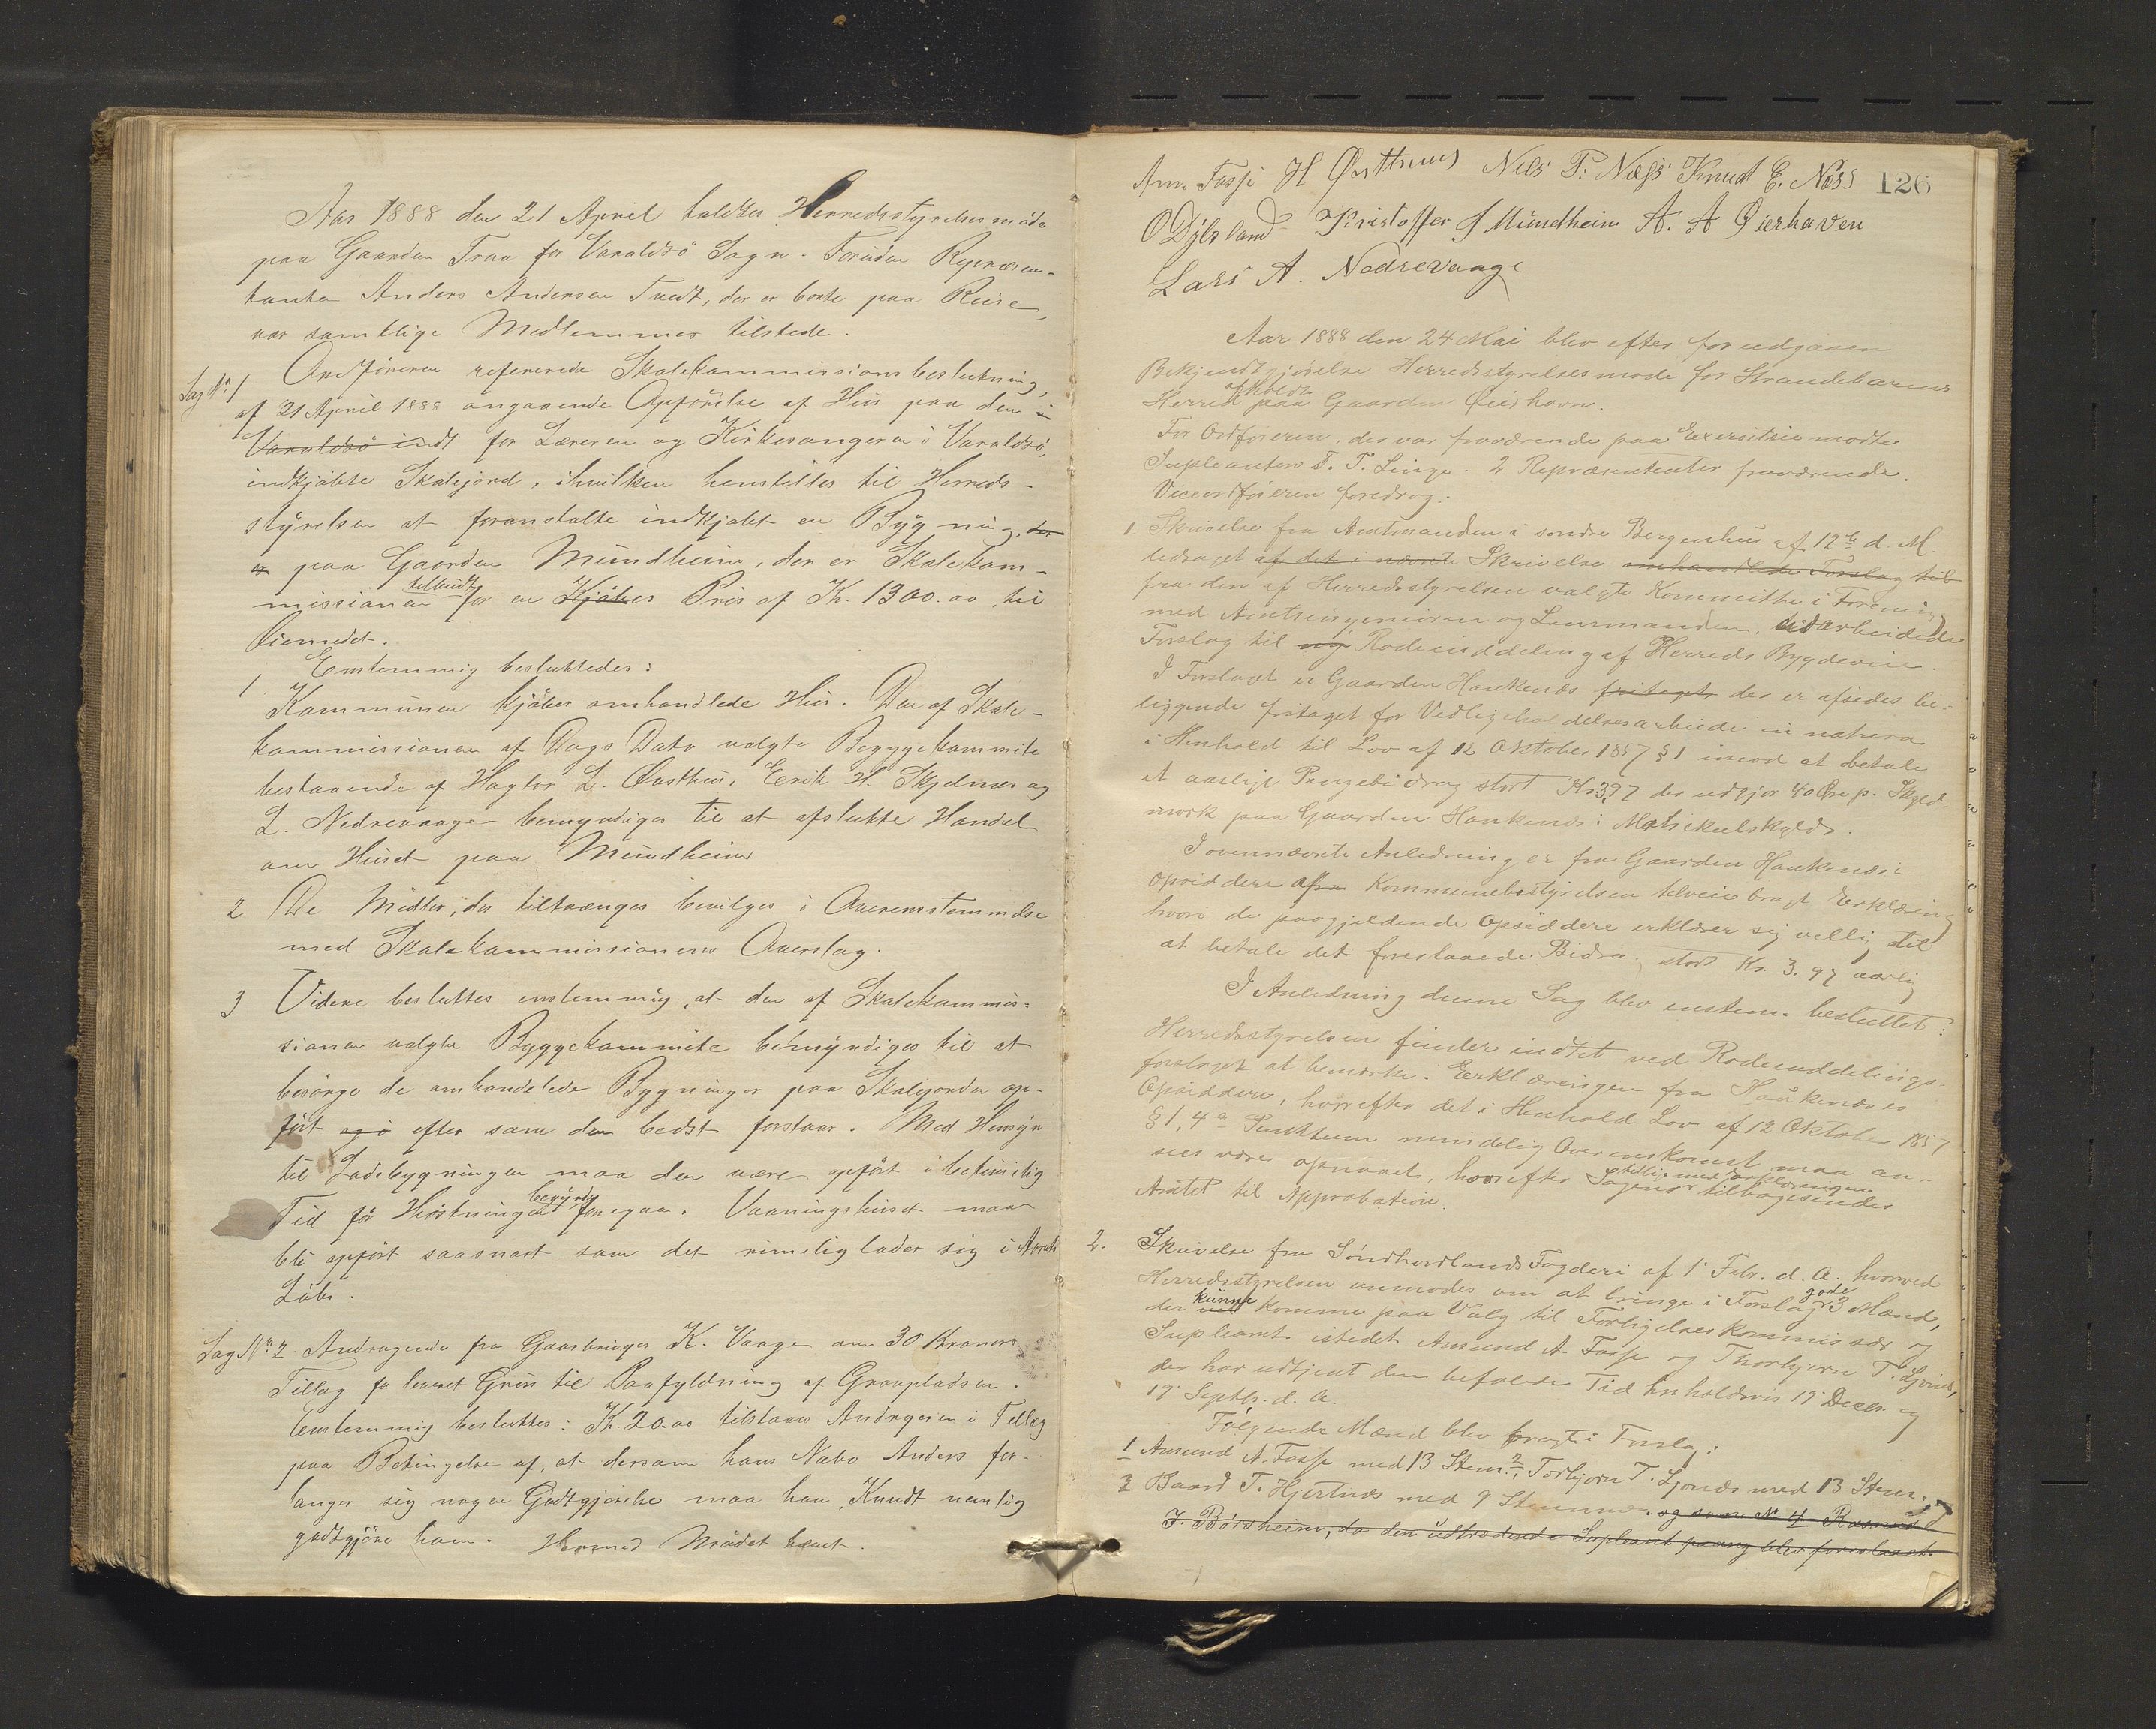 Aar 1888 den 21 April holdtes Herredsstyrelsesmöde
paa Gaarden Traa for Varaldsö Sogn. Foruden Repræsen-
tanten Anders Andersen Tvedt, der er borte paa Reise,
var samtlige Medlemmer tilstede.
Sag No 1 Ordföreren refererede Skolekommissionsbeslutning,
af 21 April 1888 angaaende Opförelse af Hus paa den i
Varaldsö indt for Læreren og Kirkesangeren i Varaldsö,
indkjöbte Skolejord, ihvilken henstilles til Herreds-
styrelsen at foranstalte indkjöbt en Bygning, der
er paa Gaarden Mundheim, der er Skolekom-
missionen tilbudt for en Kjöbes Pris af Kr. 1300.00 til
Öiemedet.
Enstemmig besluttedes:
1 Kommunen kjöber omhandlede Hus. Den af Skole-
kommissionen af Dags Dato valgte Byggekommite
bestaaende af Hagtor L. Øvsthus, Eerik H. Skjelnes og
L. Nedrevaage bemyndiges til at afslutte Handel
om Huset paa Mundheim
2 De Midler, der tiltrænges bevilges i Overensstemmelse
med Skolekommissionens Overslag.
3 Videre besluttes enstemmig, at den af Skolekommis-
sionen valgte Byggekommite bemyndiges til at
besörge de omhandlede Bygninger paa Skolejorden op-
fört og i efter som den bedst forstaar. Med Hensyn
til Ladebygningen maa den være opfört i betimelig
Tid för Höstningen begynder foregaa. Vaaningshuset maa
bli opfört saasnart som det rimelig lader sig i Aarets
Löber.
Sag No 2 Andragende fra Gaardbruger K. Vaage om 30 Kroners
Tillæg for leveret Grus til Paafyldning af Gravpladsen.
Enstemmig besluttes: Kr. 20.00 tilstaaes Andrageren i Tillæg
paa Betingelse af, at dersom hans Nabo Anders for-
langer sig nogen Godtgjörelse maa han, Knudt nemlig
godtgjöre ham. Hermed Mödet hævet.
Am. Fosse H Øvsthuus Nils P. Næss Knud E. Næss 126
O Djösland Kristoffer J Mundheim A. A Øierhavn
Lars A. Nedrevaage
Aar 1888 den 24 Mai blev efter forudgaaen
Bekjendtgjörelse Herredsstyrelsesmøde for Strandebarms
Herred afholdt paa Gaarden Øierhavn.
For Ordföreren, der var fraværende paa Exersitsie mødte
Supleanten T. T. Linge. 2 Repræsentanter fraværende.
Viceordföreren foredrog:
1 Skrivelse fra Amtmanden i søndre Bergenhus af 12te d. M.
ledsaget af det i nævnte Skrivelse omhandlede Forslag til
fra den af Herredsstyrelsen valgte Kommitte i Forening
med Amtsingeniören og Lensmanden, udarbeidede
Forslag til ny Rodeinddeling af Herreds Bygdeveie.
I Forslaget er Gaarden Haukenæs fritaget der er afsides be-
liggende fritaget for Vedligeholdelsesarbeide in natura
i Henhold til Lov af 12 Oktober 1857 § 1 imod at betale
et aarligt Pengebidrag stort Kr 3,97 der udgjør 40 Øre p. Skyld-
mark paa Gaarden Haukenæs i Matrikulskyld.
I ovennævnte Anledning er fra Gaarden Haukenæs
Opsiddere af Kommunebestyrelsen tilveiebragt Erklæring
hvori de paagjeldende Opsiddere erklærer sig villig til
at betale det foreslaaede Bidrag stort Kr. 3.97 aarlig
I Anledning denne Sag blev enstem. besluttet:
Herredsstyrelsen finder indtet ved Rodeinddelings-
forslaget at bemærke. Eerklæringen fra Haukenæs es
Opsiddere, hvorefter det i Henhold Lov af 12 Oktober 1857
§ 1, 4de Punktum mindelig Overenskomst maa an-
sees være opnaaet, hvorefter Sagen tillige med Erklæringen tilbagesendes
Amtet til Approbation.
2. Skrivelse fra Söndhordlands Fogderi af 1 Febr. d. A. hvorved
Herredsstyrelsen anmodes om at bringe i Forslag 3 gode Mænd,
der kunne komme paa Valg til Forligelseskommissær og
Supleant istedet Amund A. Fosse og Thorbjørn T. Ljones,
der har udtjent den befalede Tid henholdsvis 19 Decbr. og
19 Septbr. d. A.
Følgende Mænd blev bragt i Forslag:
1 Amund A. Fosse med 13 Stem. 2, Torbjørn T. Ljonæs med 13 Stem.
3 Baard T. Hjertnæs med 9 Stemmer. og som No 4 Rasmus
J. Børsheim, da den udtrædende Supleant paany blev foreslaaet.